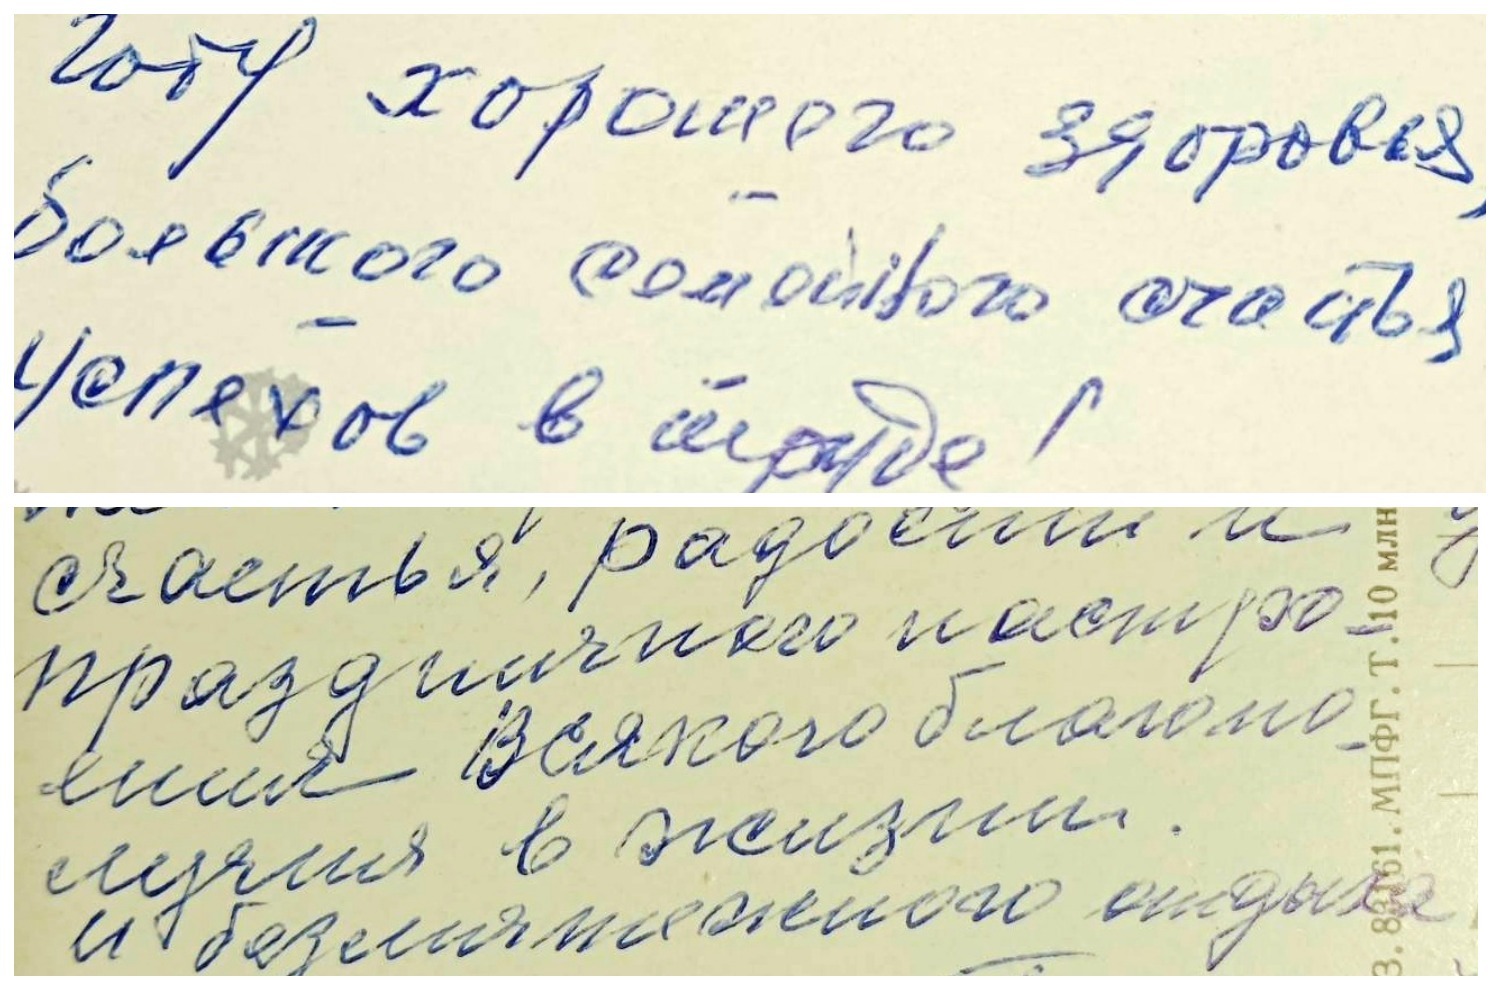 Году хорошего здоровья,
большого семейного счастья
успехов в труде!
счастья, радости и
праздничного настро-
ения Всякого благопо-
лучия в жизни.
и безмятежного отдыха
З. 83161. МПФГ. Т. 10 млн